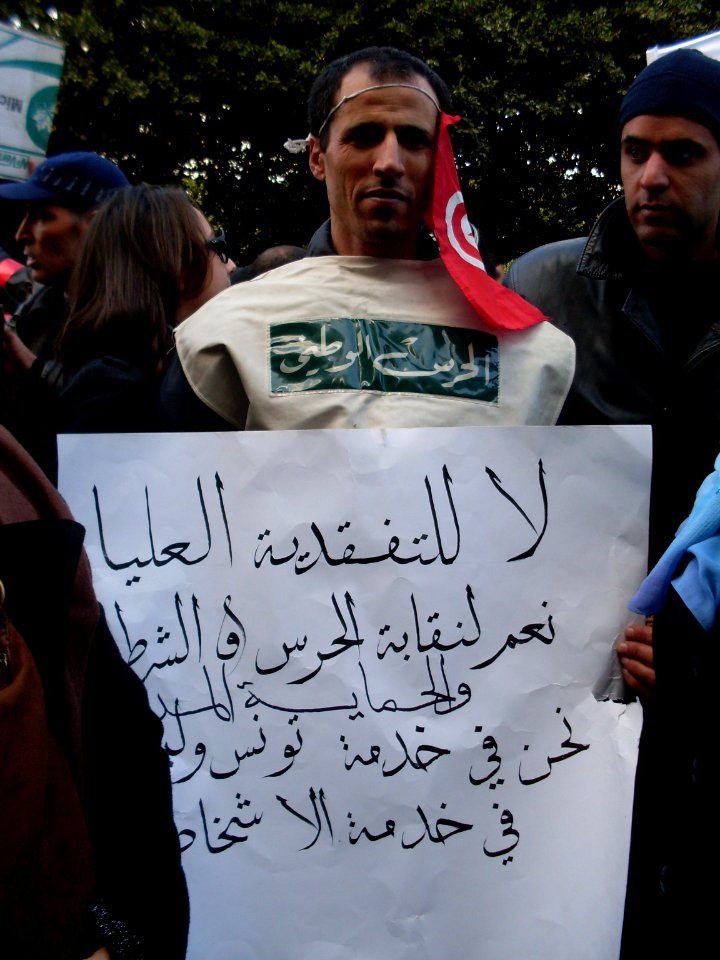 الحرس الوطني
لا للتفقدية العليا
نعم لنقابة الحرس و الشرط
والحماية المد
نحن في خدمة تونس ولي
في خدمة الا شخاص